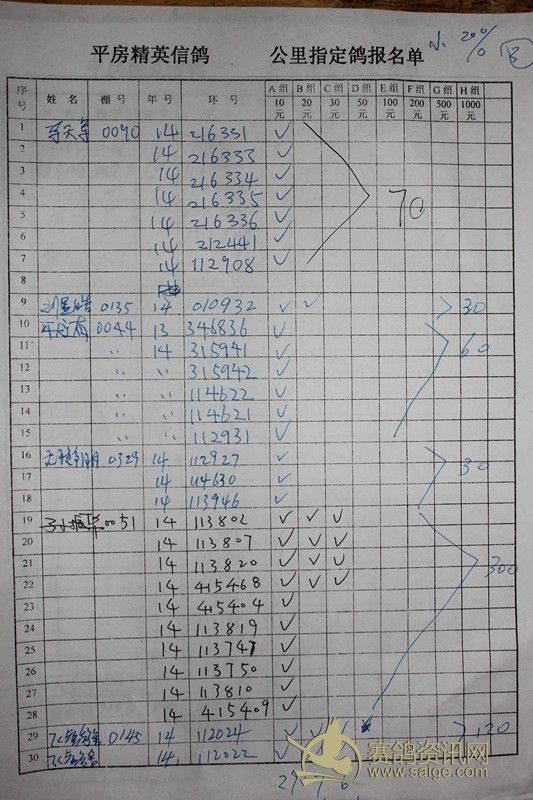 平房精英信鸽 公里指定鸽报名单 小 20%
序号 姓名 棚号 年号 环号 A组 10元 B组 20元 C组 30元 D组 50元 E组 100元 F组 200元 G组 500元 H组 1000元
1 0090 14 216351 ✓
2 14 216333 ✓
3 14 216334 ✓
4 14 216335 ✓ 70
5 14 216336 ✓
6 14 212441 ✓
7 14 112908 ✓
8
9 0135 14 010932 ✓ ✓ 30
10 0044 13 346836 ✓
11 〃 14 315941 ✓ 60
12 〃 〃 315942 ✓
13 〃 〃 114622 ✓
14 〃 〃 114621 ✓
15 〃 〃 112931 ✓
16 0329 14 112927 ✓ 30
17 14 114630 ✓
18 14 113946 ✓
19 0051 14 113802 ✓ ✓ ✓
20 14 113807 ✓ ✓ ✓
21 14 113820 ✓ ✓ ✓ 300
22 14 415468 ✓ ✓ ✓
23 14 415404 ✓
24 14 113819 ✓
25 14 113747 ✓
26 14 113750 ✓
27 14 113810 ✓
28 14 415409 ✓
29 0145 14 112024 ✓ ✓ 120
30 14 112022 ✓ ✓
赛鸽资讯网
www.saige.com